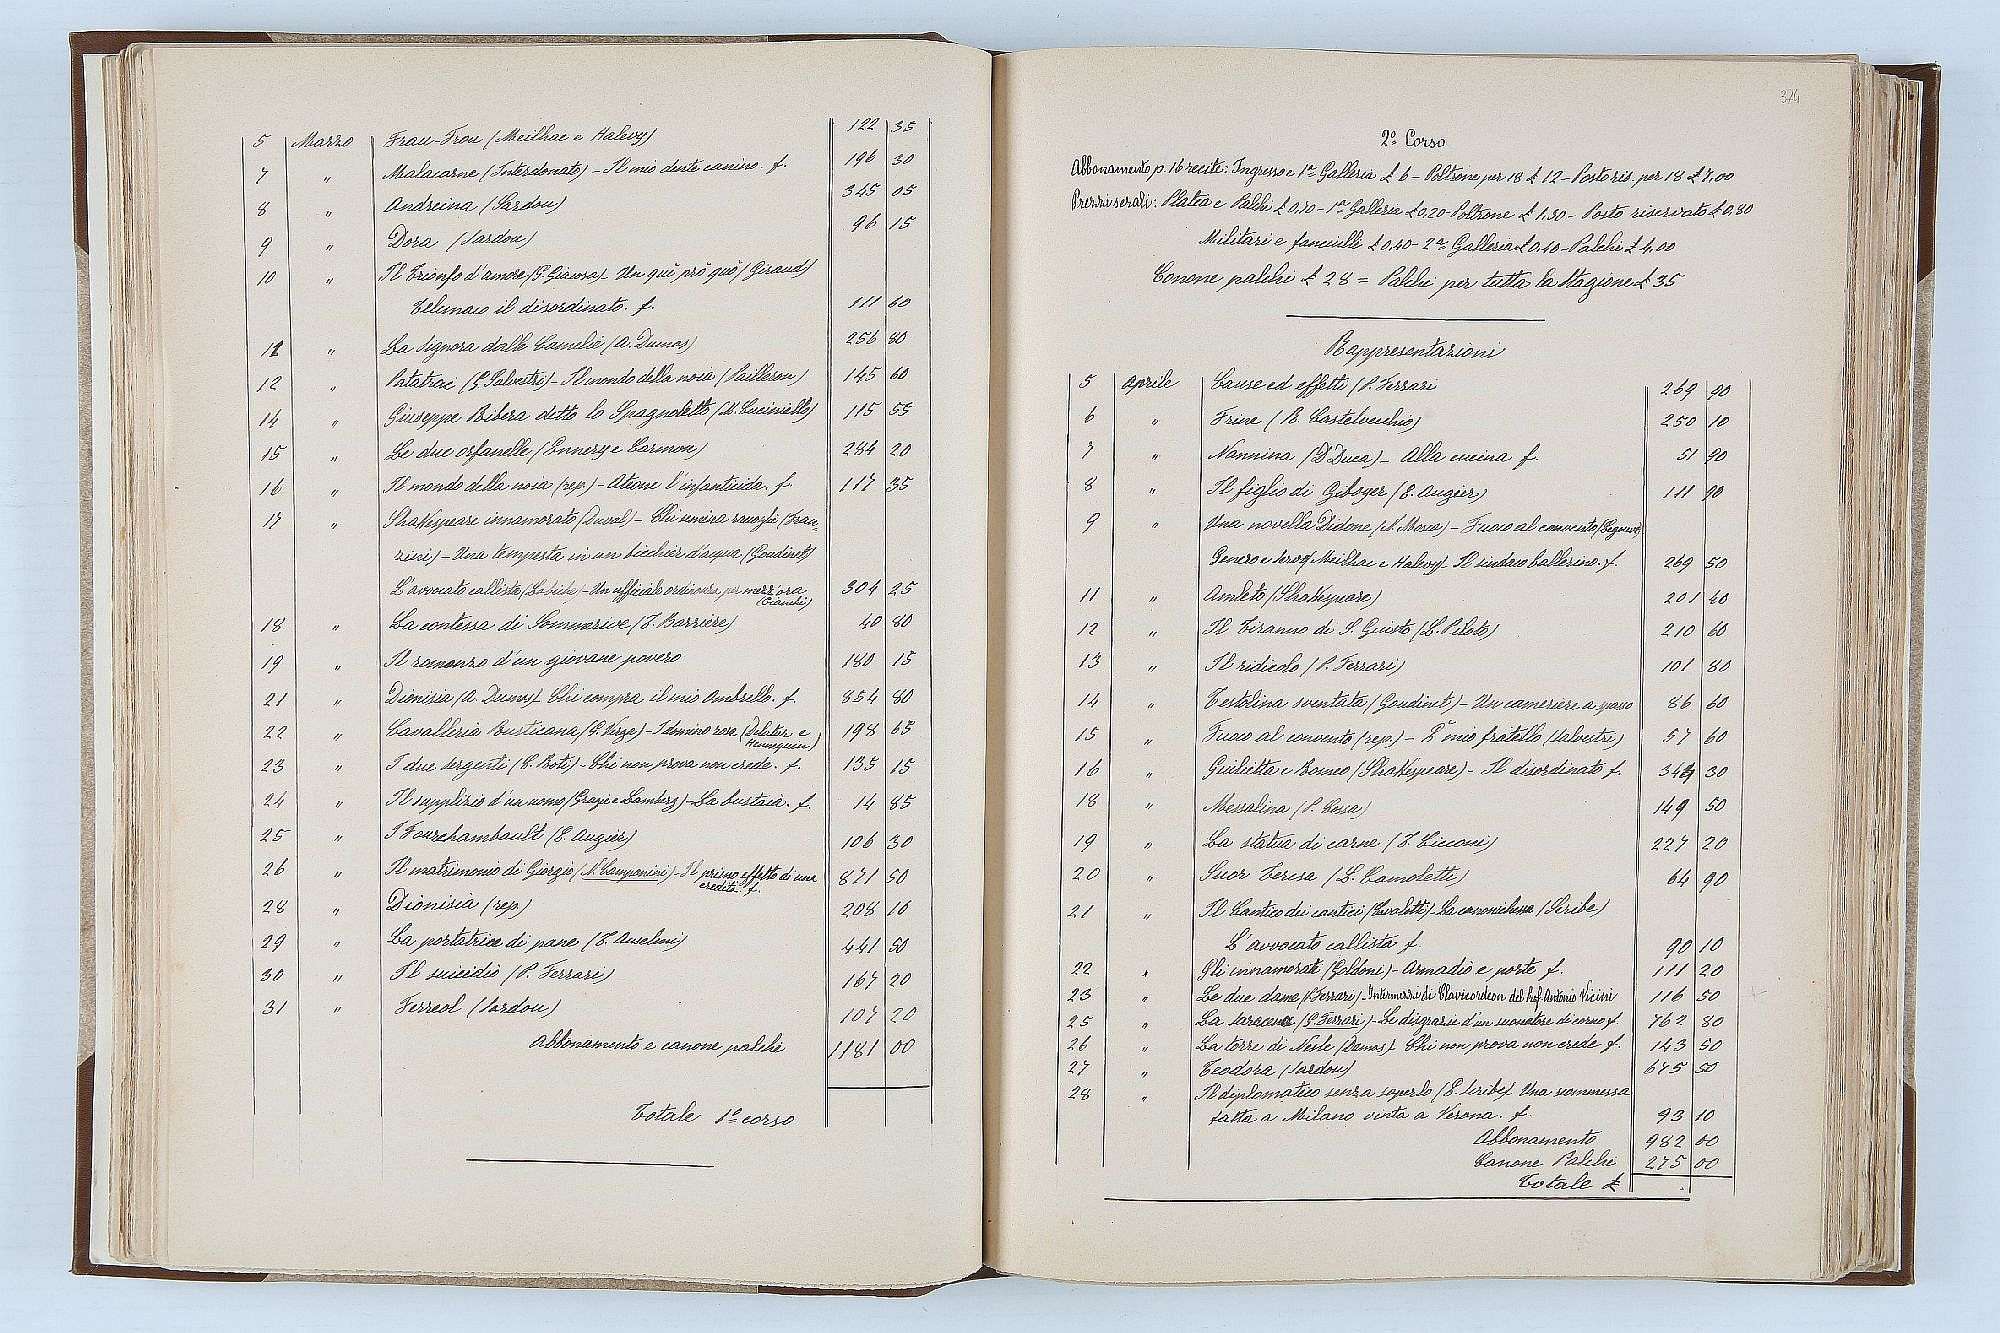 5 Marzo Frou-Frou (Meilhac e Halevy) 122 35
7 " Malacarne (Interdonato) - Il mio dente canino. f. 196 30
8 " Andreina (Sardou) 345 05
9 " Dora (Sardou) 96 15
10 " Il Trionfo d'amore (G. Giacosa) - Un quì prò quò (Giraud)
Telemaco il disordinato. f. 111 60
11 " La Signora dalle Camelie (A. Dumas) 256 80
12 " Patatrac (G. Salvestri) - Il mondo della noia (Pailleron) 145 60
14 " Giuseppe Ribera detto lo Spagnoletto (M. Cuciniello) 115 55
15 " Le due orfanelle (Ennery e Cormon) 284 20
16 " Il mondo della noia (rep.) - Atene l'infanticida. f. 117 35
17 " Shakespeare innamorato (Duval) - Chi semina raccoglie (Fran-
zini) - Una tempesta in un bicchier d'acqua (Gondinet)
L'avvocato callista (Labich) - Un ufficiale ordinanza per mezz'ora 304 25
18 " La contessa di Sommerive (T. Barriere) 40 80
19 " Il romanzo d'un giovane povero 180 15
21 " Dionisia (A. Dumas) Chi compra il mio Ombrello. f. 854 80
22 " Cavalleria Rusticana (G. Verga) - I domino rosa (Delatur e
Hennequin) 198 65
23 " I due sergenti (C. Roti) - Chi non prova non crede. f. 135 15
24 " Il supplizio d'un uomo (Grangè e Lambert) - La bustaia. f. 14 85
25 " I Fourchambault (E. Augier) 106 30
26 " Il matrimonio di Giorgio (N. Campanini) - Il primo effetto di una
eredità f. 871 50
28 " Dionisia (rep) 208 10
29 " La portatrice di pane (F. Anselmi) 441 50
30 " Il suicidio (P. Ferrari) 167 20
31 " Ferreol (Sardou) 107 20
Abbonamento e canone palchi 1181 00
Totale 1º corso
324
2º Corso
Abbonamento p. 16 recite: Ingresso e 1ª Galleria £ 6 - Poltrone per 18 £ 12 - Posto ris. per 18 £ 7,00
Prezzi serali: Platea e Palchi £ 0,70 - 1ª Galleria £ 0,20 - Poltrone £ 1.50 - Posto riservato £ 0,80
Militari e fanciulli £ 0,40 - 2ª Galleria £ 0,40 - Palchi £ 4,00
Canone palchi £ 28 = Palchi per tutta la Stagione £ 35
Rappresentazioni
5 Aprile Cause ed effetti (P. Ferrari 269 90
6 " Frine (R. Castelvecchio) 250 10
7 " Nannina (D'Duca) - Alla cucina f. 51 90
8 " Il figlio di Giboyer (E. Augier) 111 90
9 " Una novella Didone (A. Mosca) - Fuoco al convento (Legouvè)
Genero e Meilhac e Halevy) Il sindaco ballerino. f. 269 50
11 " Amleto (Shakespeare) 201 40
12 " Il Tiranno di S. Giusto (L. Piloto) 210 60
13 " Il ridicolo (P. Ferrari) 101 80
14 " Testolina sventata (Gondinet) - Un cameriere a spasso 86 60
15 " Fuoco al convento (rep.) - È mio fratello (Salvestri) 57 60
16 " Giulietta e Romeo (Shakespeare) - Il disordinato f. 344 30
18 " Messalina (P. Cossa) 149 50
19 " La statua di carne (T. Ciccone) 227 20
20 " Suor Teresa (L. Camoletti) 64 90
21 " Il Cantico dei cantici (Cavalotti) - La canonichessa (Scribe)
L'avvocato callista f. 90 10
22 " Gli innamorati (Goldoni) - Armadio e porte f. 111 20
23 " Le due dame (P. Ferrari) - Intermezzi di Clavicordeon del Prof. Antonio Vicini 116 50
25 " La saracena (G. Ferrari) - Le disgrazie d'un suonatore di corno f. 762 80
26 " La torre di Nesle (Dumas) Chi non prova non crede f. 143 50
27 " Teodora (Sardou) 675 50
28 " Il diplomatico senza saperlo (E. Scribe) Una scommessa
fatta a Milano vinta a Verona. f. 93 10
Abbonamento 982 00
Canone Palchi 275 00
Totale £